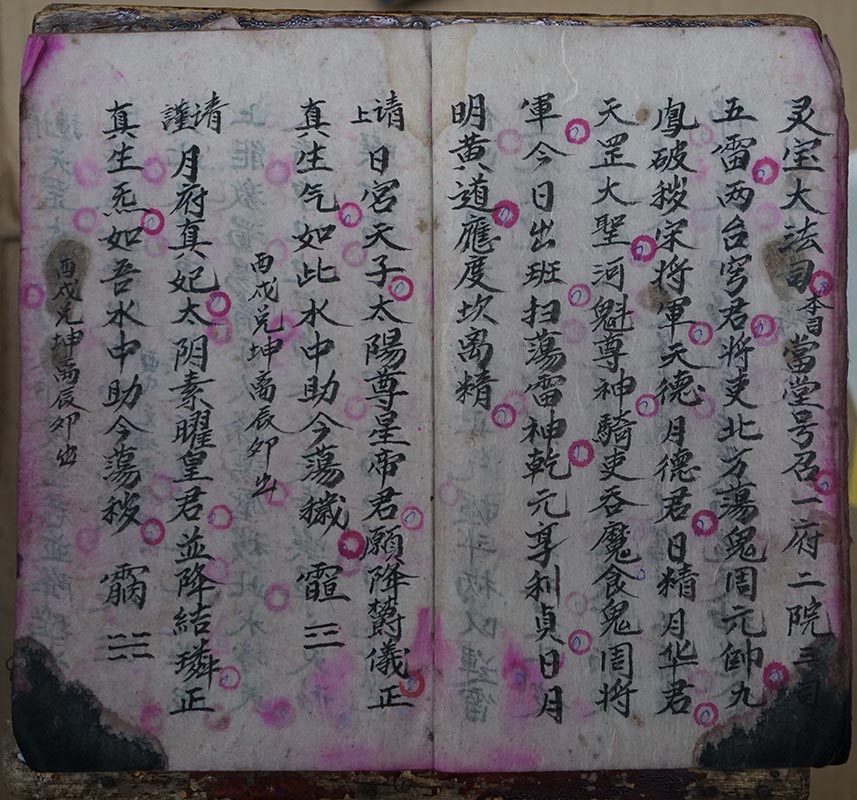 灵宝大法司本司當堂号召一府二院三司
五雷两台穹君將吏北方蕩鬼周元帥九
鳳破穢宋將軍天德月德君日精月华君
天罡大聖河魁尊神騎吏吞魔食鬼周将
軍今日出班扫蕩雷神乾元亨利貞日月
明黄道應度坎离精
上请日宮天子太陽尊星帝君願降欝儀正
真生气如此水中助今蕩穢 三
酉戍兑坤离辰卯出
謹请月府真妃太阴素曜皇君並降結璘正
真生炁如吾水中助今蕩秽
酉戍兑坤离辰卯出